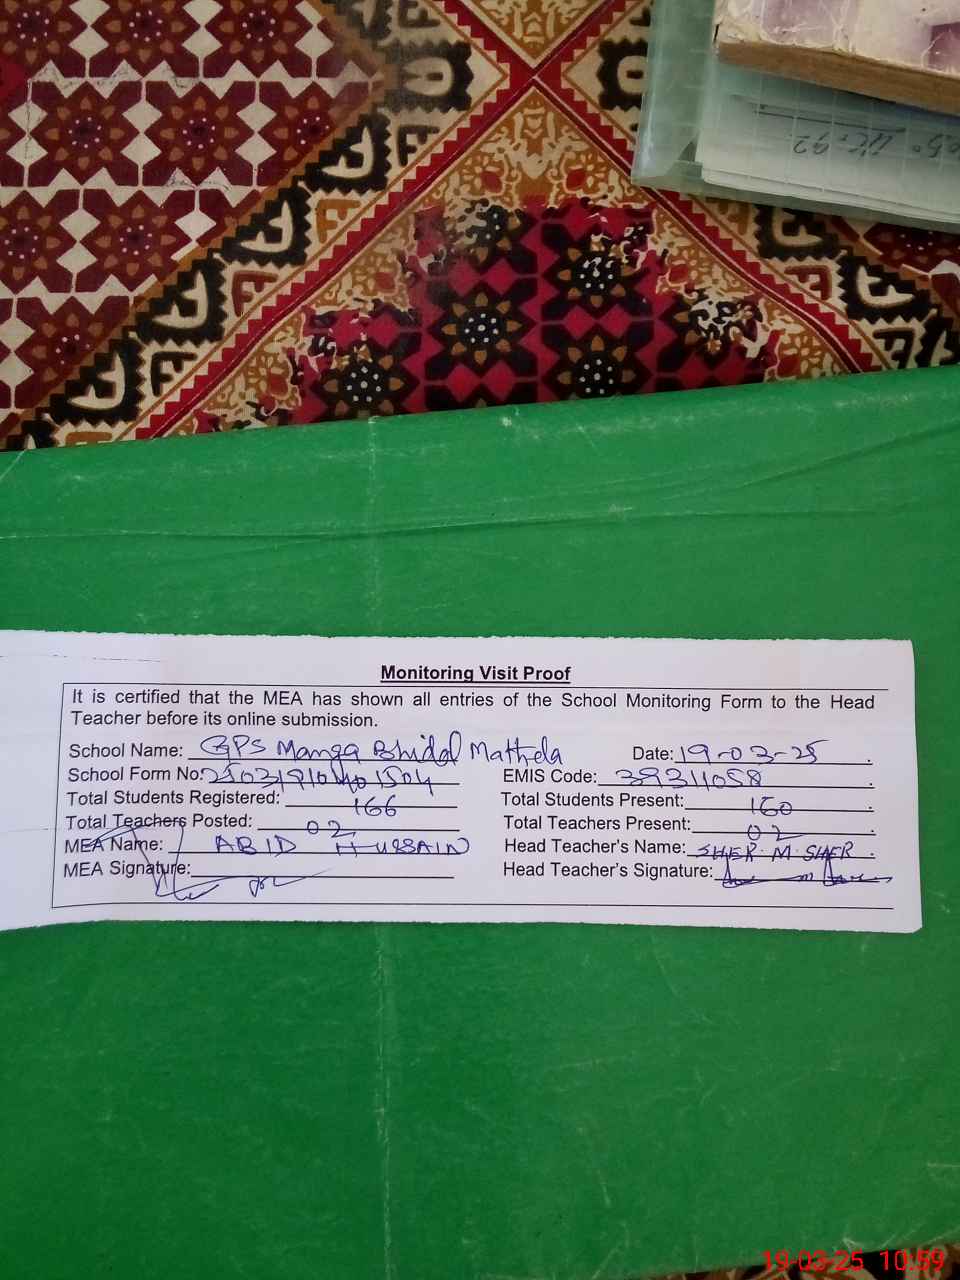 UC-92
Monitoring Visit Proof
It is certified that the MEA has shown all entries of the School Monitoring Form to the Head
Teacher before its online submission.
School Name: GPS Manga Bhidal Mathela Date: 19-03-25.
School Form No: EMIS Code: 39311058.
Total Students Registered: 166 Total Students Present: 160.
Total Teachers Posted: 02 Total Teachers Present: 02.
MEA Name: ABID HUSSAIN Head Teacher's Name: SHER M. SHER.
MEA Signature: Head Teacher's Signature:
19-03-25 10:59